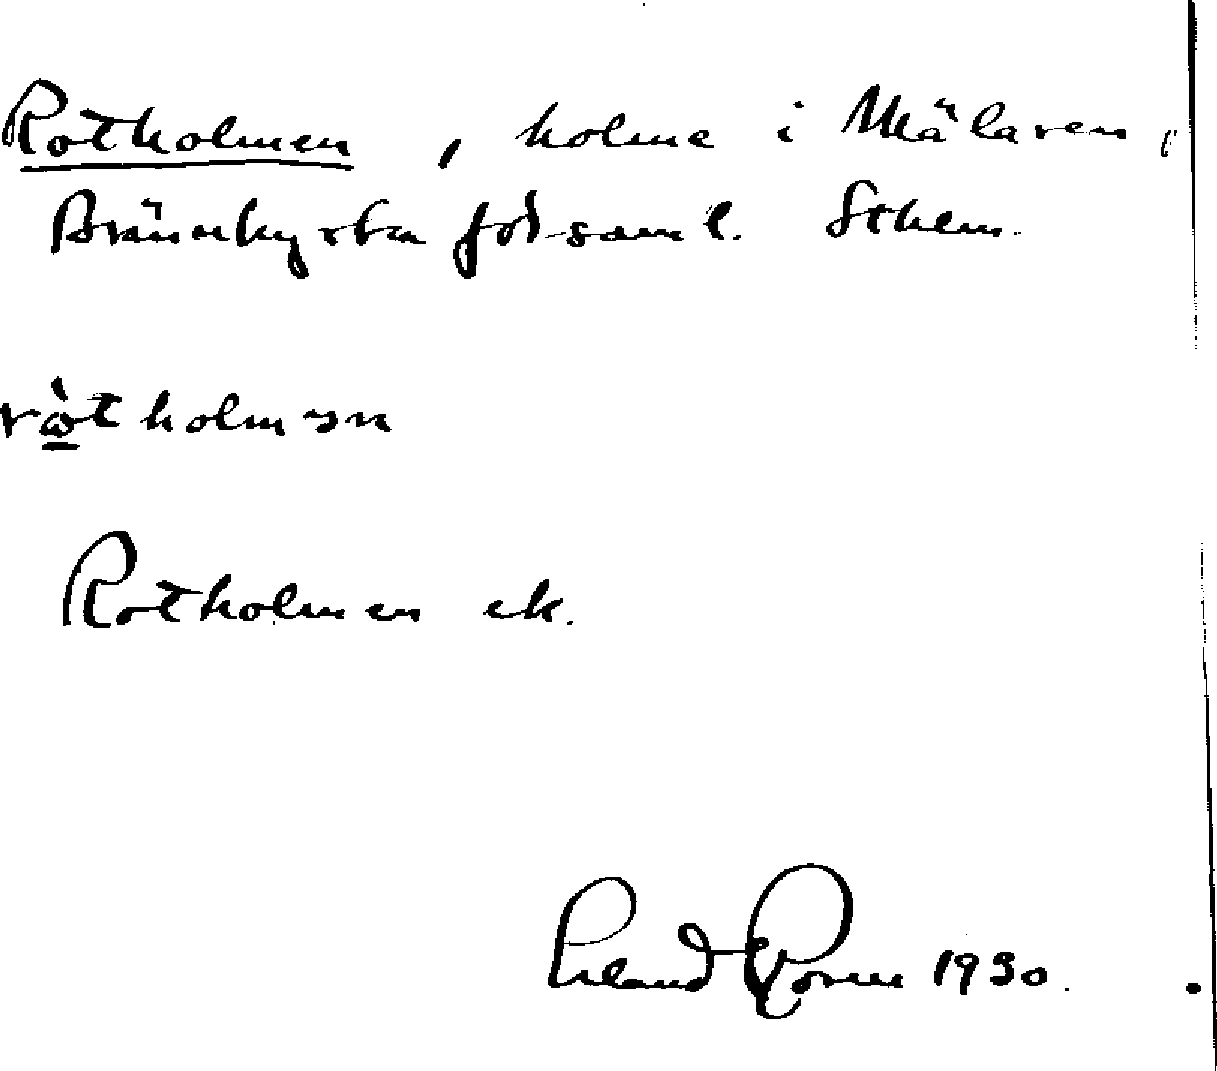 Rotholmen, holme i Mälaren,
Brännkyrka förs­aml. Sthlm.
ròtholmən
Rotholmen ek.
Erland Rosell 1930.